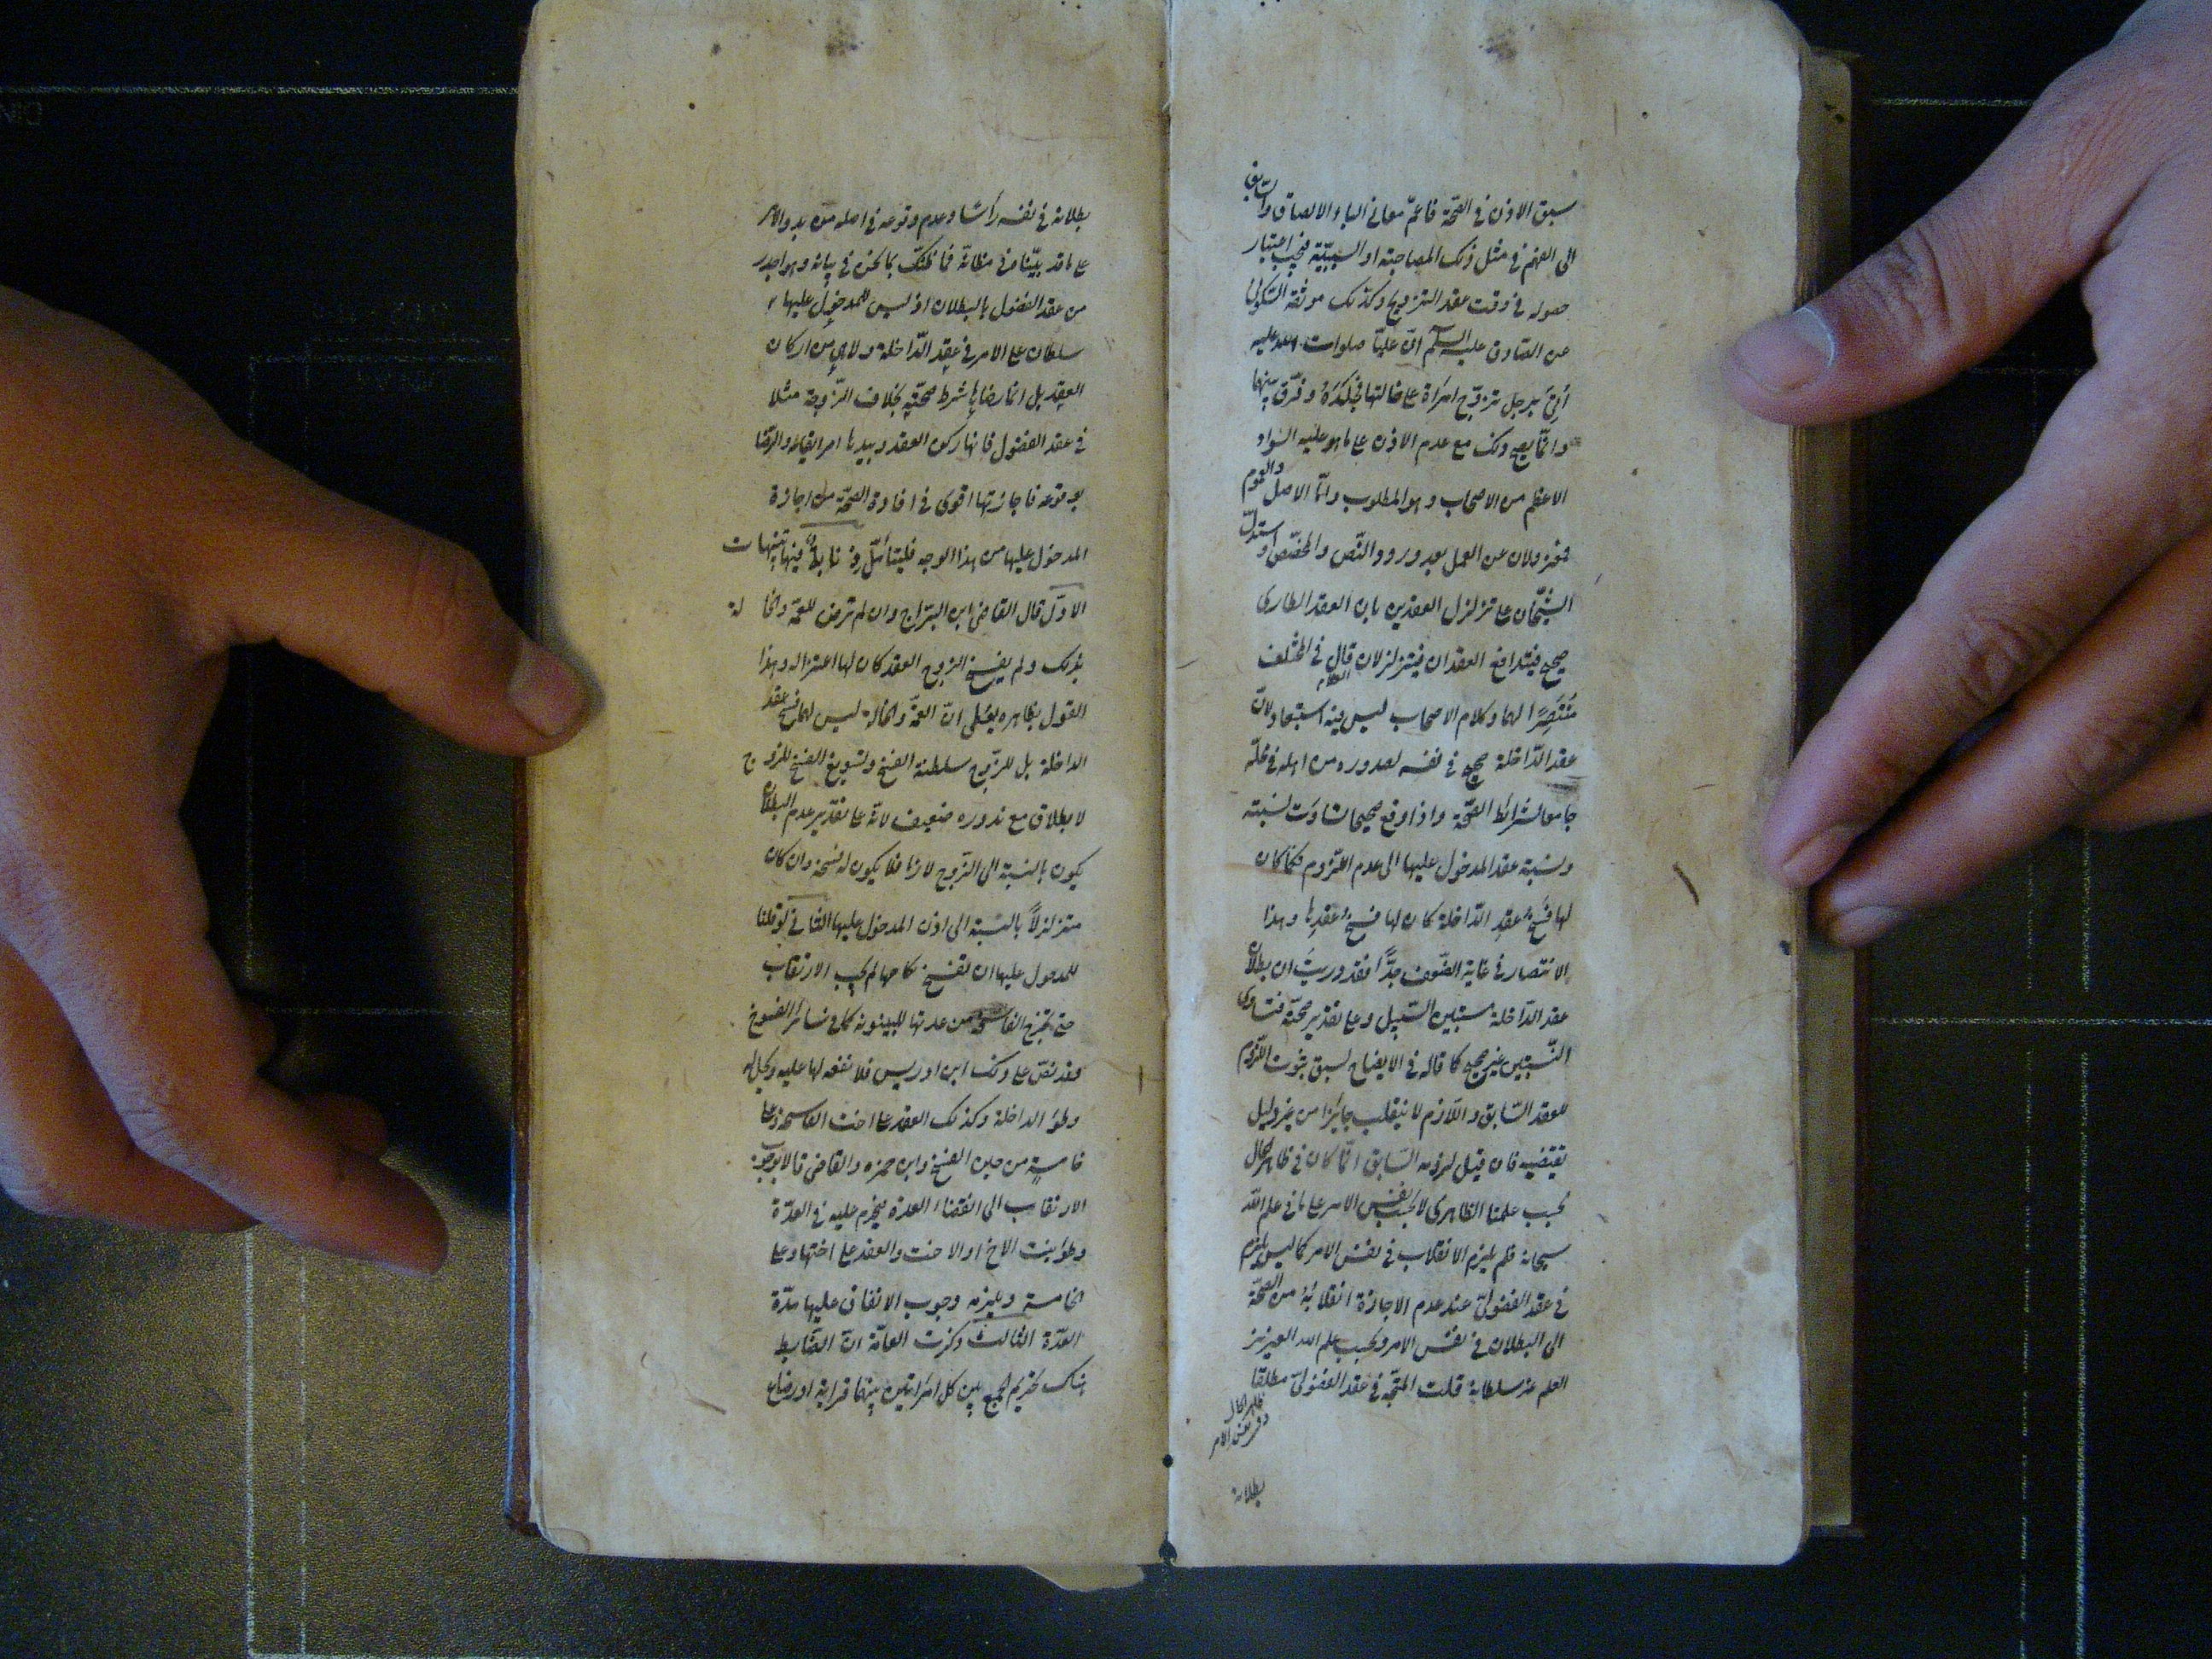 سبق الاذن في الصحّة فاعمّ معاني الباء الالصاق والسابق
الى الفهم في مثل ذلك المصاحبة او السببيّة فيجب اعتبار
حصوله في وقت عقد التزويج وكذلك موثقة السكوني
عن الصادق عليه السلم انّ عليّا صلوات الله عليه
أُتِيَ برجل تزوّج امرأة على خالتها فجلَدَهُ وفرّق بينهما
وانّما يصح ذلك مع عدم الاذن على ما هو عليه السواد
الاعظم من الاصحاب وهو المطلوب وامّا الاصل والعموم
فمعزولان عن العمل بعد ورود النّص والمخصّص واستدلّ
الشيخان على تزلزل العقدين بان العقد الطارى
صحيح فيتدافع العقدان فيتزلزلان قال العلّام في المختلف
مُنتَصِرًا لهما وكلام الاصحاب ليس فيه استبعاد لانّ
عقد الدّاخلة صحيح في نفسه لصدوره من اهله في محلّه
جامعا لشرائط الصحّة واذا وقع صحيحا تساوت نسبته
ونسبة عقد المدخول عليها الى عدم اللزوم فكما كان
لها فسخُ عقدِ الدّاخلة كان لها فسخُ عقدِها وهذا
الانتصار في غاية الضّعف جدًّا فقد دريتَ ان بطلان
عقد الدّاخلة مستبين السّبيل وعلى تقدير صحّته فتساوى
النّسبتين غير صحيح كما قاله في الايضاح لسبق ثبوت اللّزوم
للعقد السّابق واللّازم لا ينقلب جايزا من غير دليل
يقتضيه فان قيل لزومه السّابق انّما كان في ظاهر الحال
بحسب علمنا الظاهرى لا بحسب نفس الامر على ما في علم اللّه
سبحانه فلم يلزم الانقلاب في نفس الامر كما ليس يلزم
في عقد الفضوليّ عند عدم الاجازة انقلابُه من الصحّة
الى البطلان في نفس الامر وبحسب علم الله العزيز
العلم عزّ سلطانه قلت المتّجه في عقد الفضوليّ مطلقا
ظاهر الحال
وفي نفس الامر
بطلانه
بطلانه في نفسه رأسًا وعدم وقوعه في اصله من بدو الامر
على ما قد بيّنّا في مظانّه فما ظنّك بما نحن في بيانه وهو اجدر
من عقد الفضول بالبطلان اذ ليس للمدخول عليها
سلطان على الامر في عقد الدّاخلة ولا هي من اركان
العقد بل انّما رضاها شرط صحّته بخلاف الزّوجة مثلا
في عقد الفضول فانها ركن العقد وبيدها امر ايقاعه والرضا
بوقوعه فاجازتها اقوى في افادة الصحّة من اجازة
المدخول عليها من هذا الوجه فليتأمّل فيها تنبيهات
الاوّل قال القاضي ابن البرّاج وان لم ترض العمّة والخالة
بذلك ولم يفسخ الزوج العقد كان لها اعتزاله وهذا
القول بظاهره يعطى انّ العمّة والخالة ليس لهما فسخ عقد
الداخلة بل للزّوج سلطنة الفسخ وتسويغ الفسخ للزوج
لا بطلاق مع ندوره ضعيف لانّه على تقدير عدم البطلان
يكون بالنسبة الى الزّوج لازما فلا يكون له فسخه وان كان
متزلزلاً بالنسبة الى اذن المدخول عليها الثاني لو قلنا
للمدخول عليها ان تفسخ نكاحها لم يجب الارتقاب
حتى تخرج الفاسخة من عدتها للبينونة كما في سائر الفسوخ
وقد نصّ على ذلك ابن ادريس فلا نفقة لها عليه ويحلّ له
وطؤ الداخلة وكذلك العقد على اخت الفاسخة وعلى
خامسةٍ من حين الفسخ وابن حمزه والقاضي قالا بوجوب
الارتقاب الى انقضاء العدة فيحرم عليه في العدّة
وطؤ بنت الاخ او الاخت والعقد على اختها وعلى
الخامسة ويلزمه وجوب الانفاق عليها مدّة
العدّة الثالث ذكرت العامّة انّ الضّابط
هناك تحريم الجمع بين كل امرأتين بينهما قرابة او رضاع